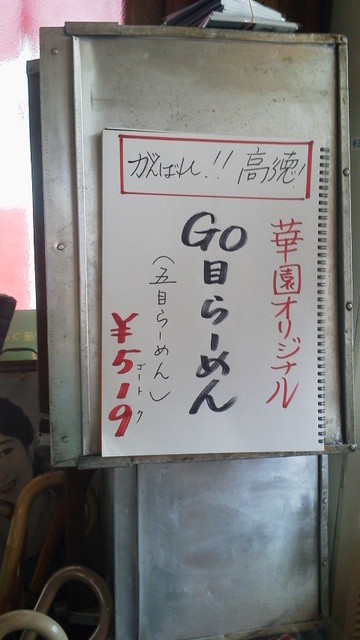 がんばれ!! 高徳!
華園オリジナル
GO目らーめん
(五目らーめん)
¥519
ゴートク